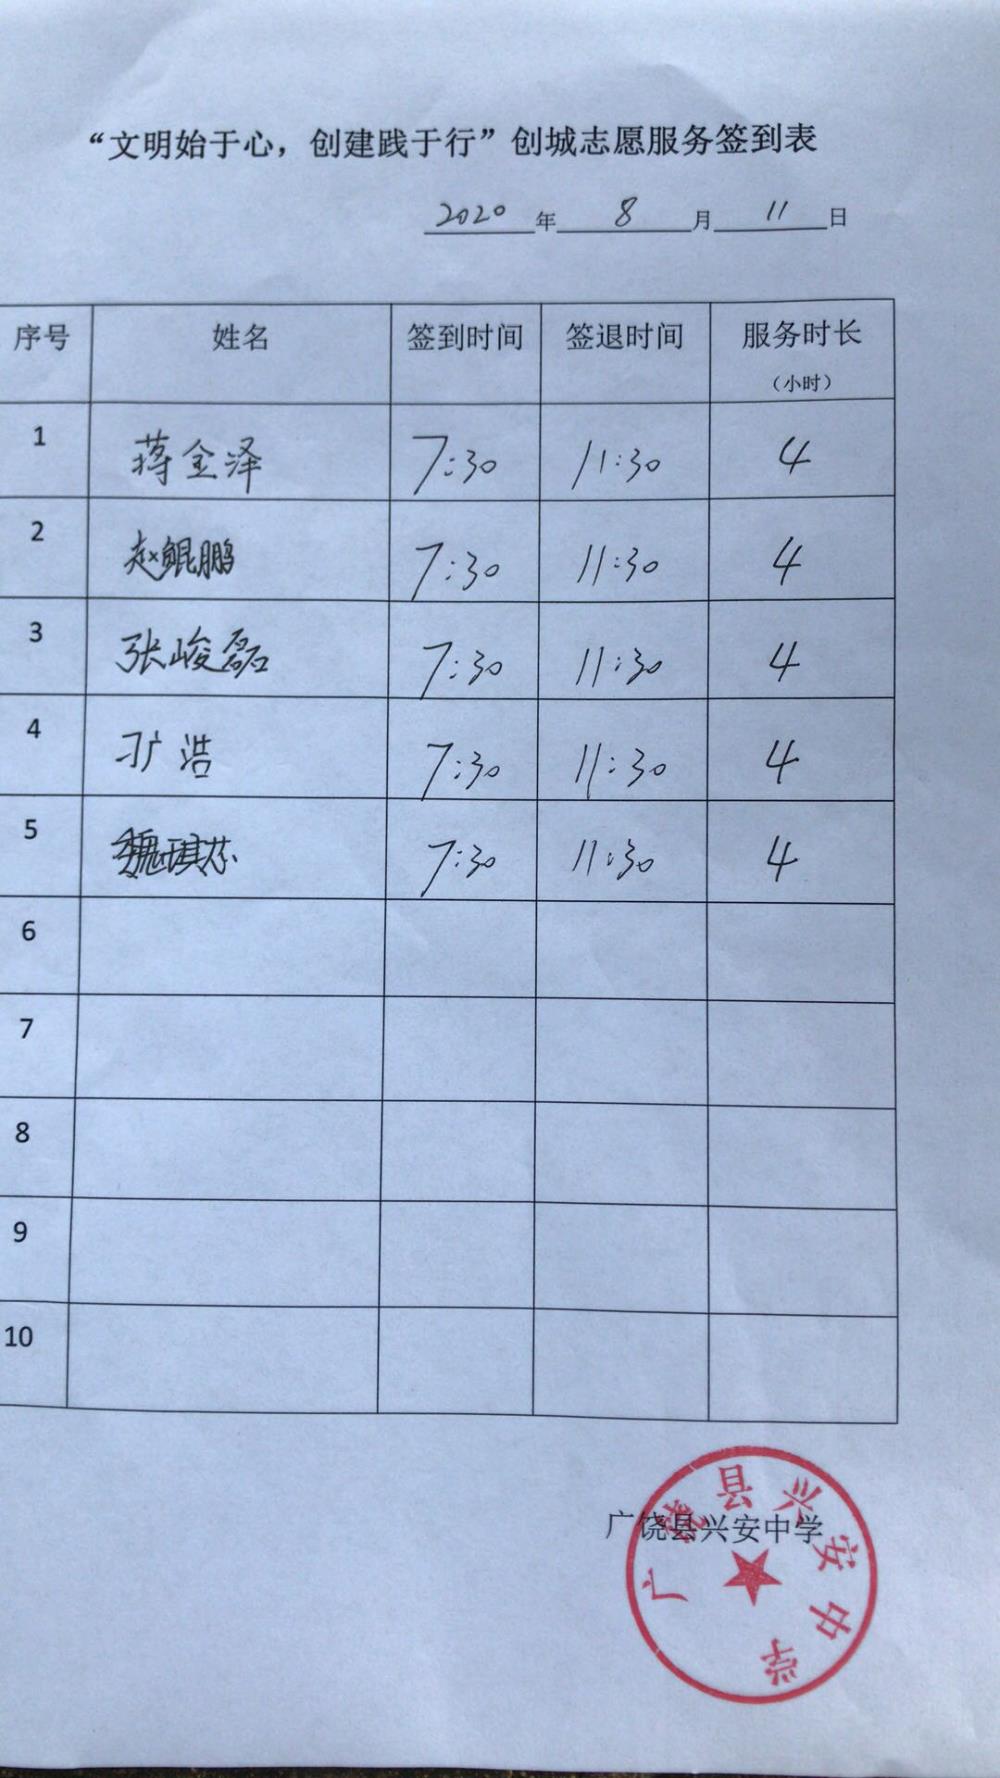 “文明始于心，创建践于行”创城志愿服务签到表
2020 年 8 月 11 日
序号 姓名 签到时间 签退时间 服务时长
（小时）
1 蒋金泽 7:30 11:30 4
2 赵鲲鹏 7:30 11:30 4
3 张峻磊 7:30 11:30 4
4 浩 7:30 11:30 4
5 魏琪芯 7:30 11:30 4
6
7
8
9
10
广饶县兴安中学
广饶县兴安中学